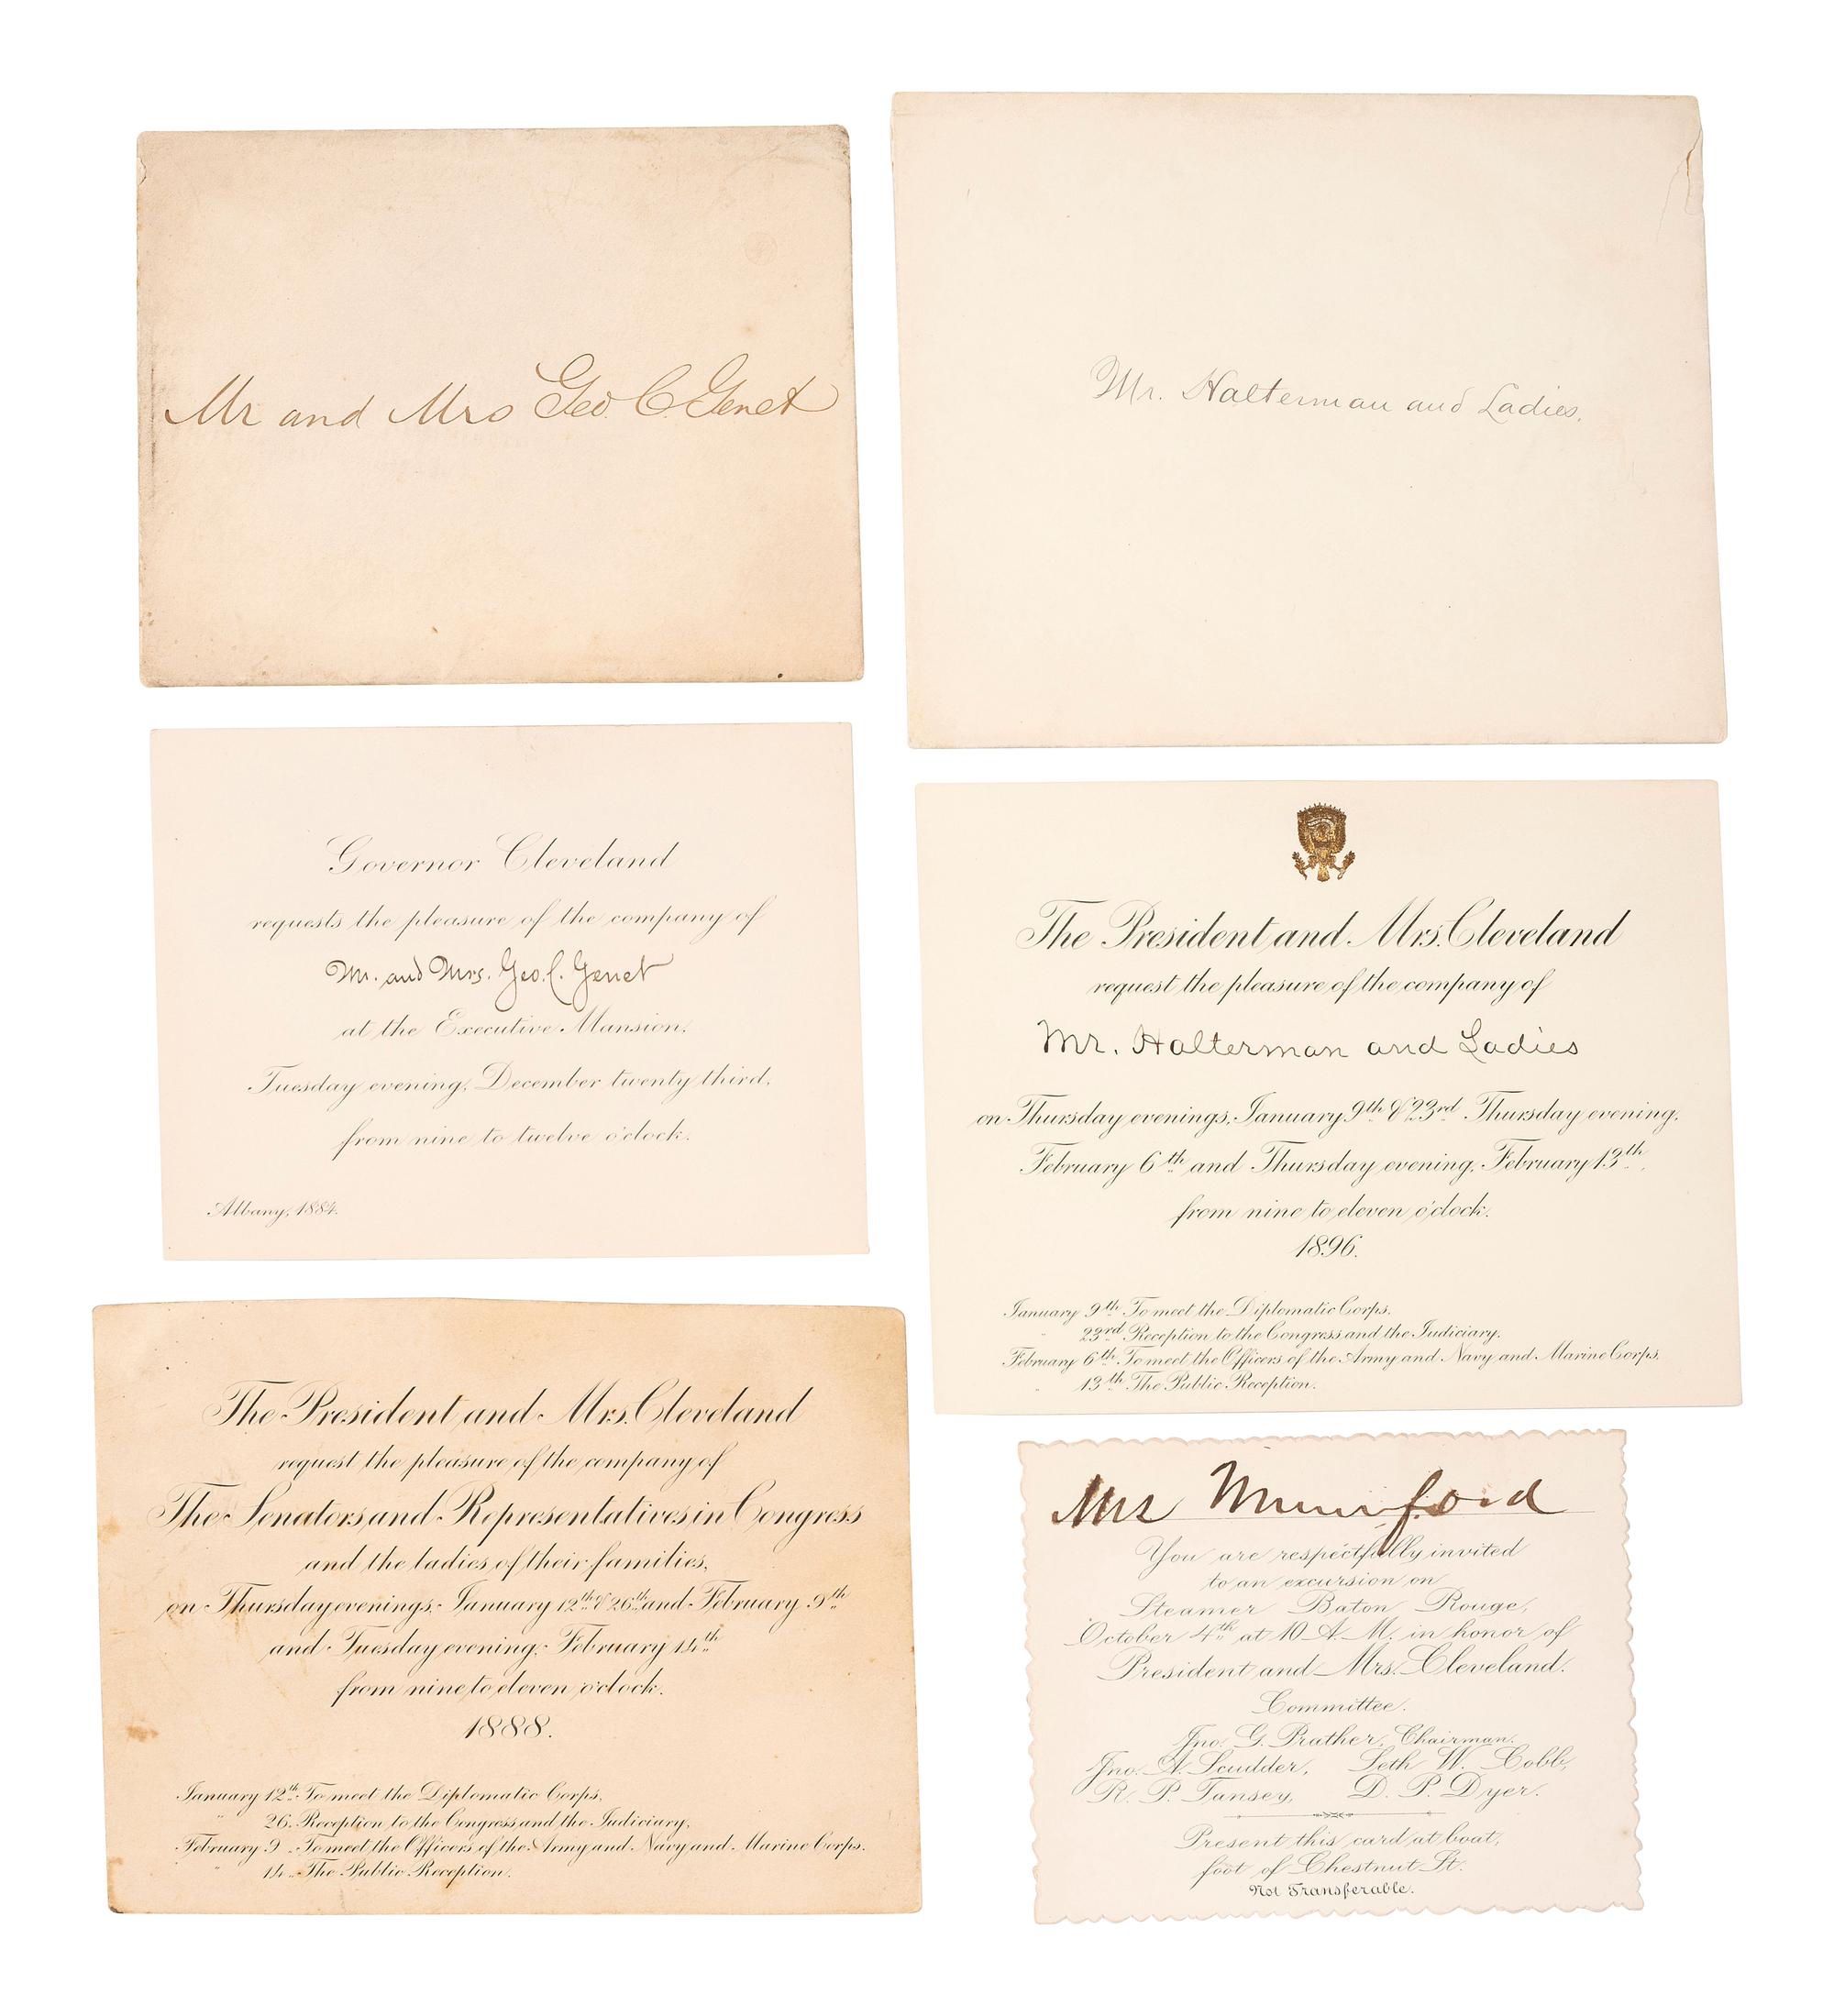 Mr and Mrs Geo. C. Genet
Mr. Halterman and Ladies.
Governor Cleveland
requests the pleasure of the company of
Mr. and Mrs. Geo. C. Genet
at the Executive Mansion,
Tuesday evening, December twenty third,
from nine to twelve o'clock.
Albany, 1884.
The President and Mrs. Cleveland
request the pleasure of the company of
Mr. Halterman and Ladies
on Thursday evenings, January 9th & 23rd Thursday evening,
February 6th and Thursday evening, February 13th,
from nine to eleven o'clock.
1896.
January 9th To meet the Diplomatic Corps.
" 23rd Reception to the Congress and the Judiciary.
February 6th To meet the Officers of the Army and Navy and Marine Corps.
" 13th The Public Reception.
The President and Mrs. Cleveland
request the pleasure of the company of
The Senators and Representatives in Congress
and the ladies of their families,
on Thursday evenings, January 12th & 26th and February 9th
and Tuesday evening, February 14th
from nine to eleven o'clock.
1888.
January 12th To meet the Diplomatic Corps,
" 26. Reception to the Congress and the Judiciary,
February 9 To meet the Officers of the Army and Navy and Marine Corps.
" 14 The Public Reception.
Mrs Mumford
You are respectfully invited
to an excursion on
Steamer Baton Rouge,
October 4th at 10 A. M. in honor of
President and Mrs. Cleveland.
Committee.
Jno. G. Prather, Chairman.
Jno. A. Scudder, Seth W. Cobb,
R. P. Tansey, D. P. Dyer.
Present this card at boat,
foot of Chestnut St.
Not Transferable.